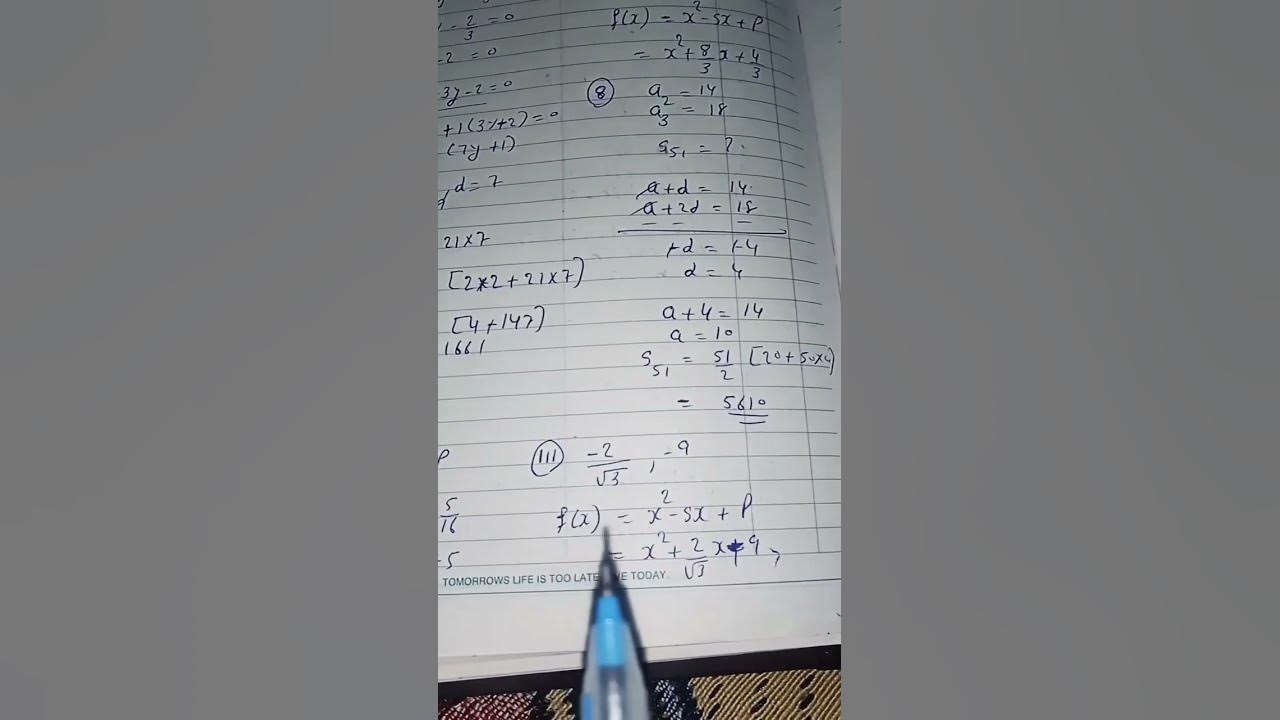 - 2/3 = 0
-2 = 0
-3y-2=0
+1(3y+2)=0
(7y+1)
d=7
21x7
[2x2+21x7)
[4+147)
1661
P
5/16
-5
f(x) = x²-Sx+P
= x²+8/3 x+4/3
(8) a₂ = 14
a₃ = 18
S₅₁ = ?.
a+d = 14
a+2d = 18
- - -
+d = +4
d = 4
a+4 = 14
a = 10
S₅₁ = 51/2 [20+50x4)
= 5610
(III) -2/√3 , -9
f(x) = x²-Sx+P
= x²+2/√3 x-9,
TOMORROWS LIFE IS TOO LATE TODAY.